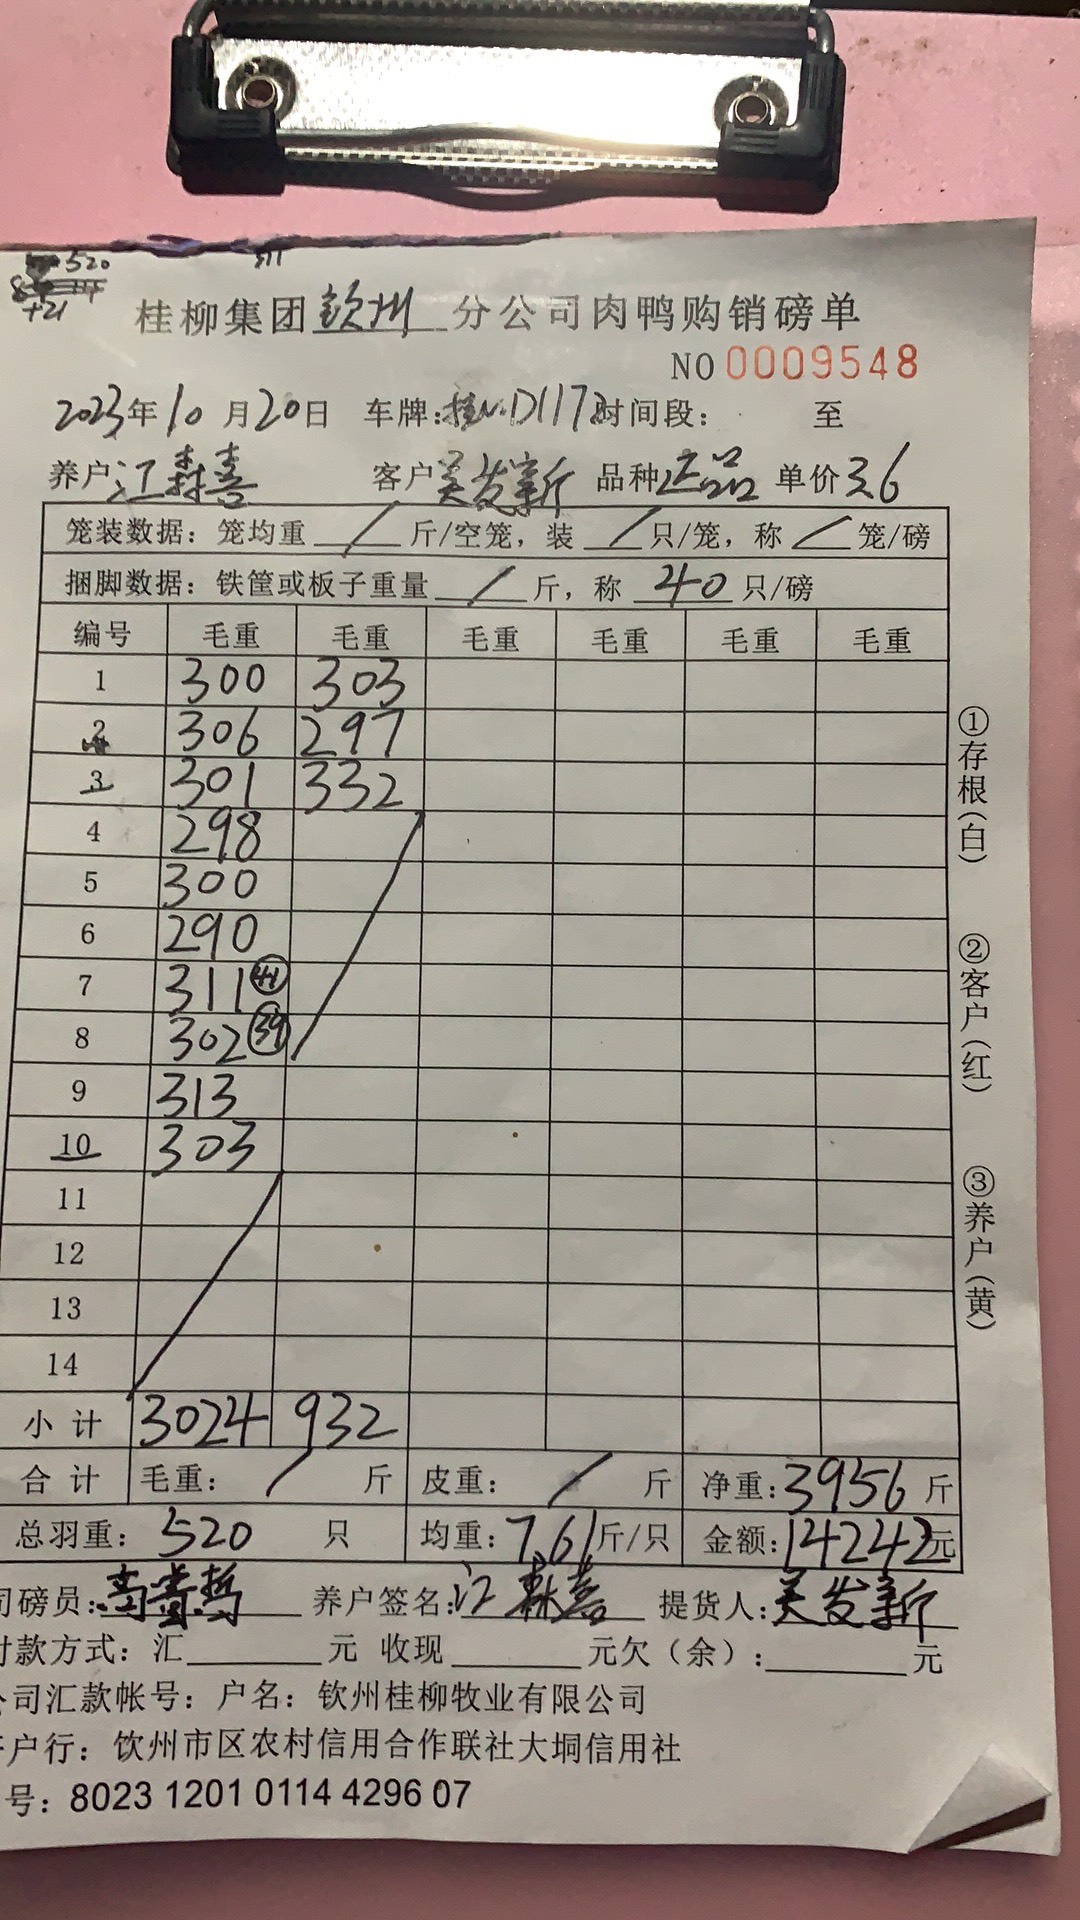 520
+21
桂柳集团钦州分公司肉鸭购销磅单
NO 0009548
2023年10月20日 车牌: 时间段: 至
养户江森喜 客户吴发新 品种正品 单价3.6
笼装数据：笼均重 / 斤/空笼，装 / 只/笼，称 / 笼/磅
捆脚数据：铁筐或板子重量 / 斤，称 40 只/磅
编号 毛重 毛重 毛重 毛重 毛重 毛重
1 300 303
2 306 297
3 301 332
4 298
5 300
6 290
7 311 41
8 302 39
9 313
10 303
11
12
13
14
小计 3024 932
合计 毛重: / 斤 皮重: / 斤 净重:3956斤
总羽重: 520 只 均重:7.61斤/只 金额:14242元
司磅员: 养户签名:江森喜 提货人:吴发新
付款方式：汇 元 收现 元欠（余）: 元
公司汇款帐号：户名：钦州桂柳牧业有限公司
开户行：钦州市区农村信用合作联社大垌信用社
号：8023 1201 0114 4296 07
①存根(白)
②客户(红)
③养户(黄)